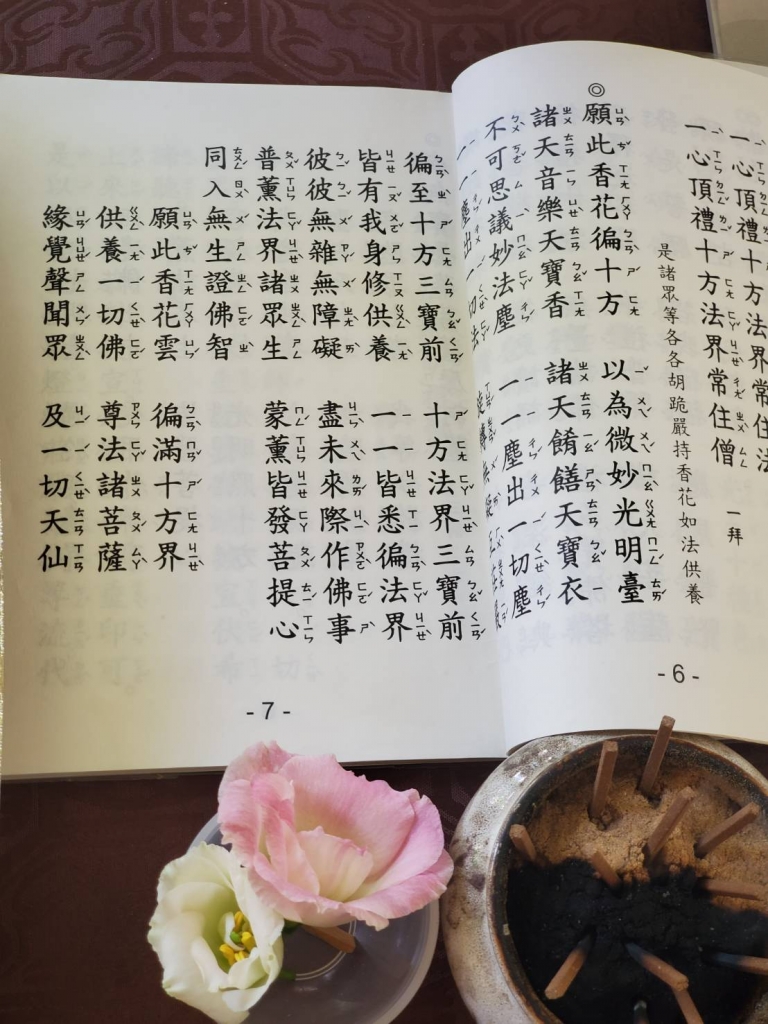 一心頂禮十方法界常住法
一心頂禮十方法界常住僧 一拜
是諸眾等各各胡跪嚴持香花如法供養
◎
願此香花徧十方 以為微妙光明臺
諸天音樂天寶香 諸天餚饍天寶衣
不可思議妙法塵 一一塵出一切塵
一一塵出一切法
-6-
徧至十方三寶前 十方法界三寶前
皆有我身修供養 一一皆悉徧法界
彼彼無雜無障礙 盡未來際作佛事
普薰法界諸眾生 蒙薰皆發菩提心
同入無生證佛智
願此香花雲 徧滿十方界
供養一切佛 尊法諸菩薩
緣覺聲聞眾 及一切天仙
-7-